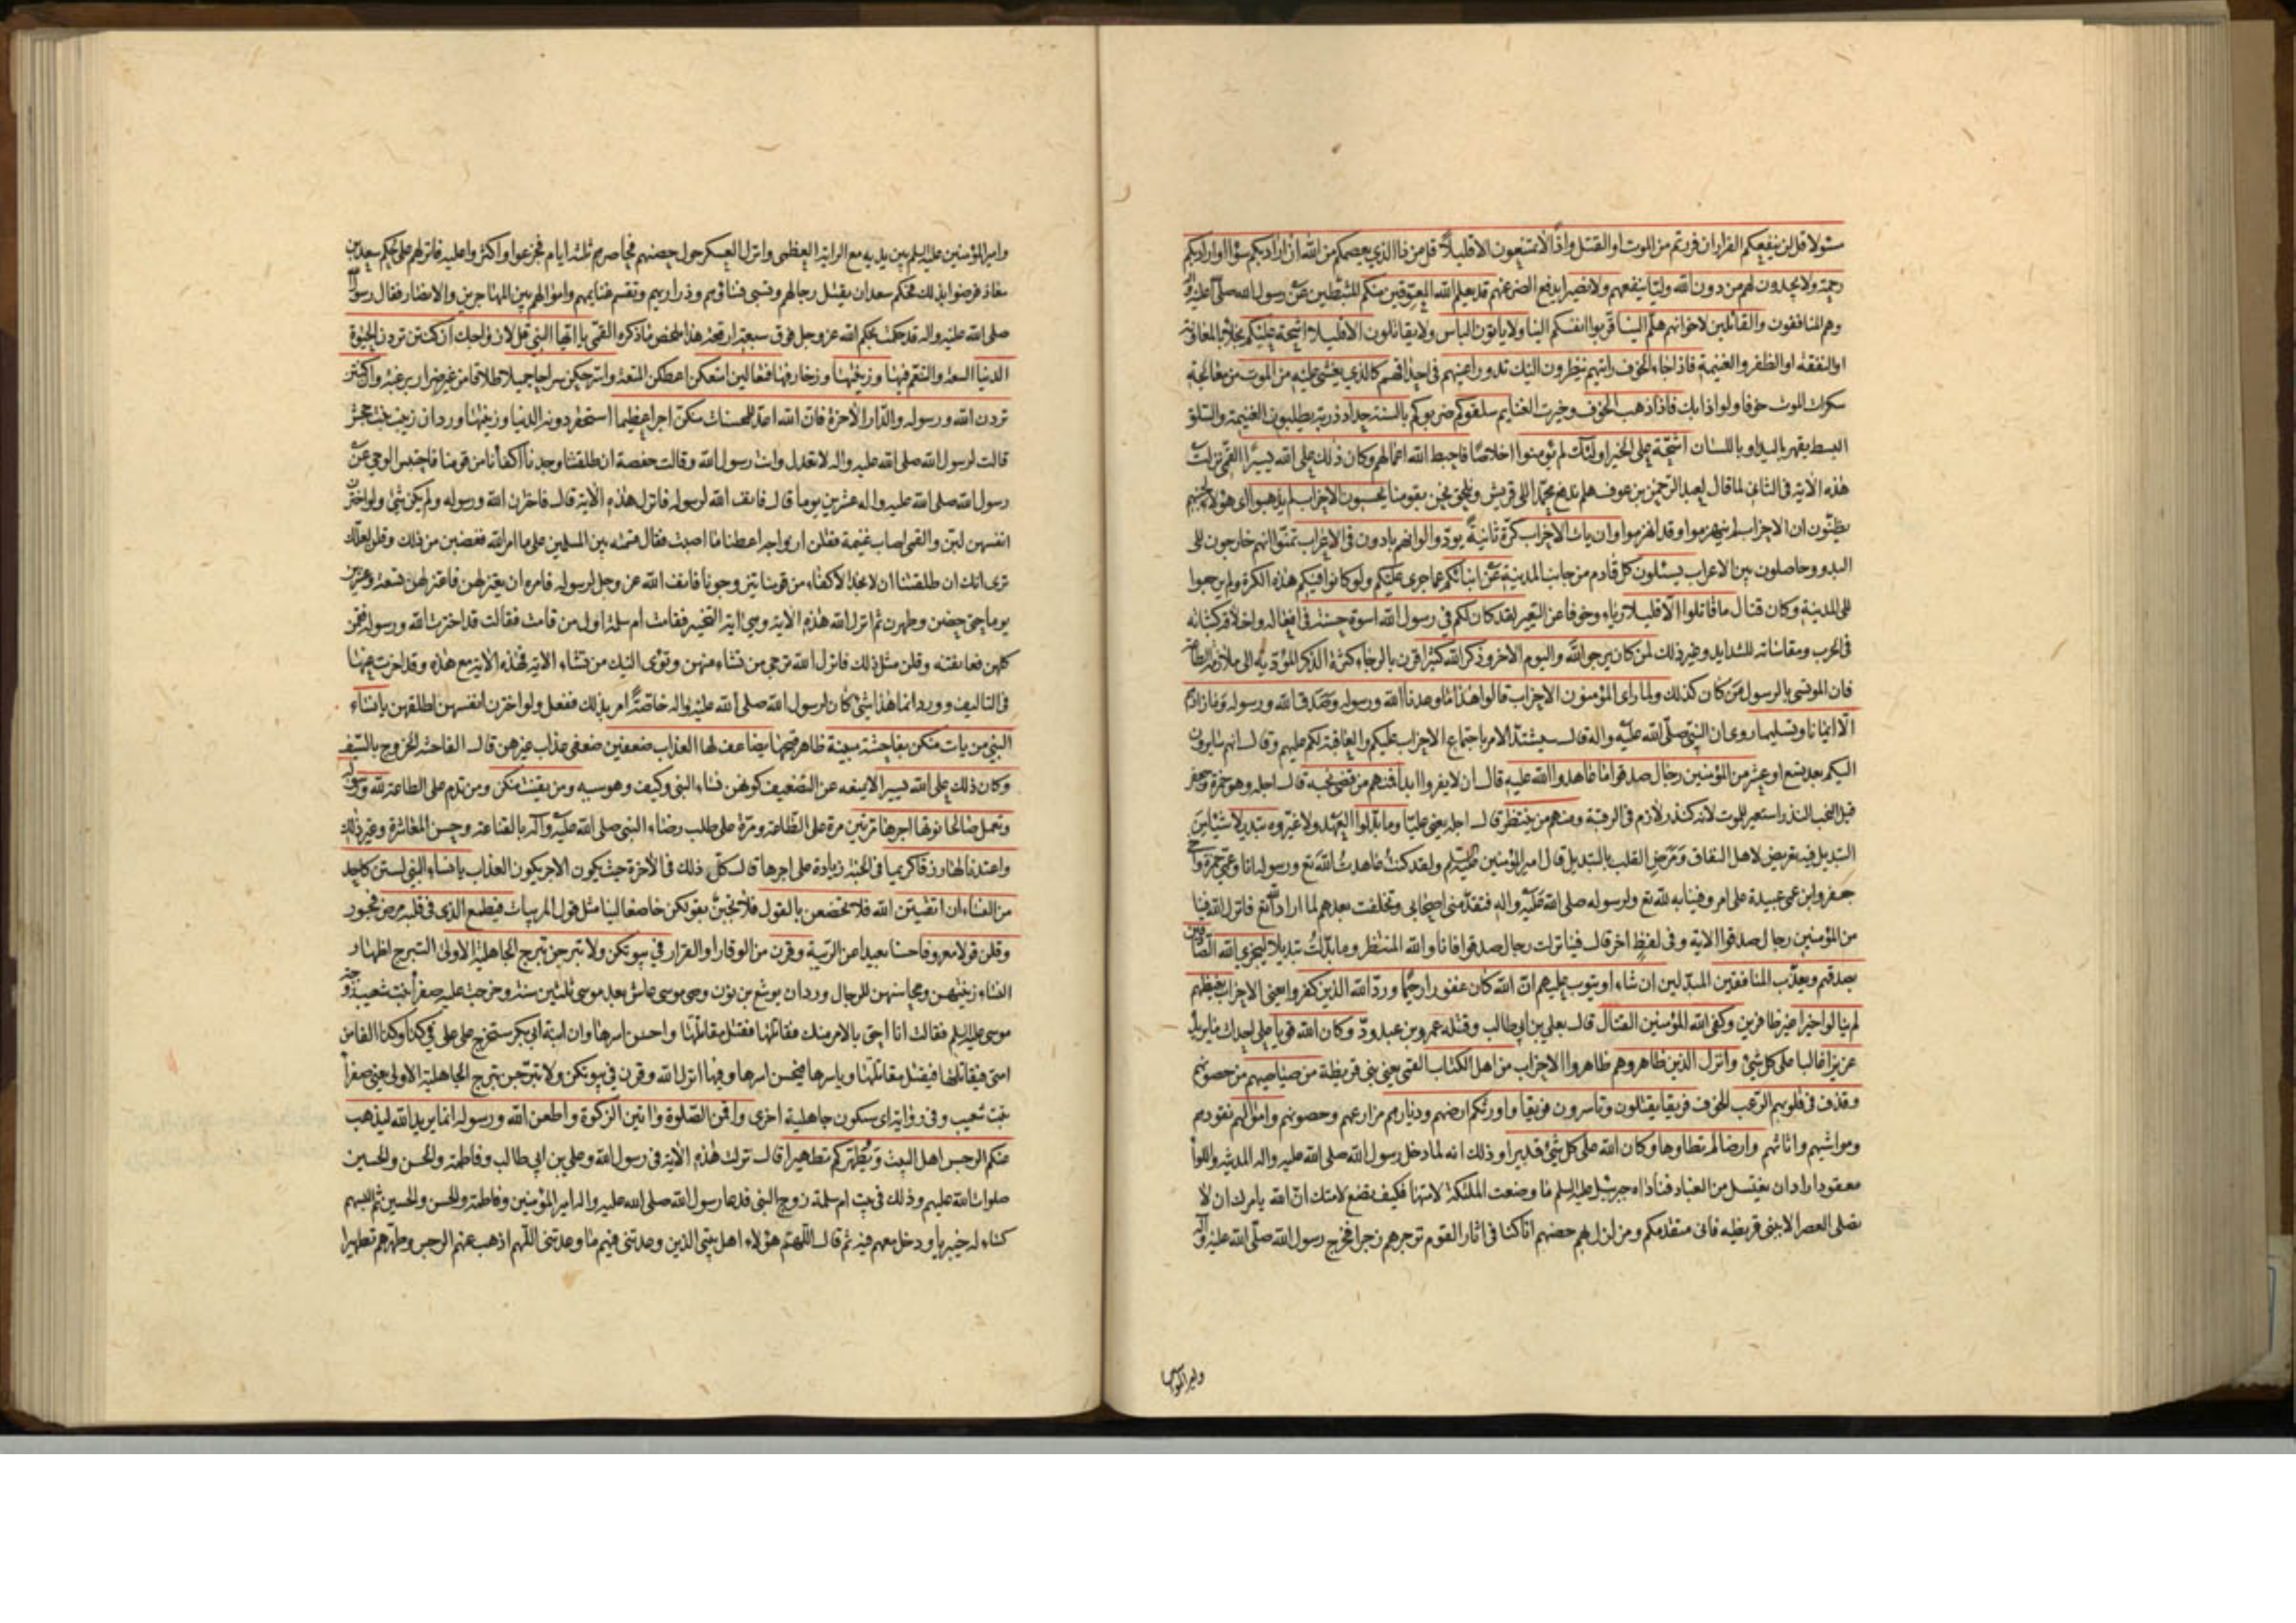 مسئولا قل لن ينفعكم الفرار ان فررتم من الموت او القتل واذًا لا تمتعون الا قليلاً قل من ذا الذي يعصمكم من الله ان اراد بكم سوءًا او اراد بكم
رحمة ولا يجدون لهم من دون الله وليّا ينفعهم ولا نصيرا يدفع الضر عنهم قد يعلم الله المعوّقين منكم المثبطين عن رسول الله صلى الله عليه وآله
وهم المنافقون والقائلين لاخوانهم هلمّ الينا قرّبوا انفسكم الينا ولا ياتون الباس ولا يقاتلون الا قليلا اشحة عليكم بخلاء بالمعاونة
او النفقة او الظفر والغنيمة فاذا جاء الخوف رايتهم ينظرون اليك تدور اعينهم في احداقهم كالذي يغشى عليه من الموت من معالجة
سكرات الموت خوفا ولواذا بك فاذا ذهب الخوف وحيزت الغنايم سلقوكم ضربوكم بالسنة حداد ذربة يطلبون الغنيمة والسلق
البسط بقهر باليد او باللسان اشحّة على الخير اولئك لم يؤمنوا اخلاصًا فاحبط الله اعمالهم وكان ذلك على الله يسيرًا القمي نزلت
هذه الآية في الثاني لما قال لعبد الرحمن بن عوف هلم ندفع محمدا الى قريش ونلحق نحن بقومنا يحسبون الاحزاب لم يذهبوا اى هؤلاء لجبنهم
يظنّون ان الاحزاب لم ينهزموا وقد انهزموا وان يات الاحزاب كرّة ثانيةً يودّوا لو انهم بادون في الاعراب تمنّوا انهم خارجون الى
البدو وحاصلون بين الاعراب يسئلون كل قادم من جانب المدينة عن انبائكم عما جرى عليكم ولو كانوا فيكم هذه الكرة ولم يرجعوا
الى المدينة وكان قتال ما قاتلوا الّا قليلا رياء وخوفا عن التعيير لقد كان لكم في رسول الله اسوة حسنة في افعاله واخلاقه كثباته
في الحرب ومقاساته للشدايد وغير ذلك لمن كان يرجو الله واليوم الاخر وذكر الله كثيرا قرن بالرجاء كثرة الذكر المؤدية الى ملازمة الطاعة
فان الموتسى بالرسول من كان كذلك ولما راى المؤمنون الاحزاب قالوا هذا ما وعدنا الله ورسوله وصدق الله ورسوله وما زادهم
الّا ايمانا وتسليما روى ان النبي صلى الله عليه وآله قال سيشتدّ الامر باجتماع الاحزاب عليكم والعاقبة لكم عليهم وقال انهم سايرون
اليكم بعد تسع او عشر من المؤمنين رجال صدقوا ما عاهدوا الله عليه قال ان لا يفروا ابدا فمنهم من قضى نحبه قال اجله وهو حمزة وجعفر
قيل النحب النذر استعير للموت لانه كنذر لازم في الرقبة ومنهم من ينتظر قال اجله يعني عليّا وما بدّلوا العهد ولا غيّروه تبديلا شيئا من
التبديل فيه تعريض لاهل النفاق ومرض القلب بالتبديل قال امير المؤمنين عليه السلم ولقد كنت عاهدت الله تع ورسوله انا وعمي حمزة واخي
جعفر وابن عمي عبيدة على امر وفينا به لله تع ولرسوله صلى الله عليه واله فتقدّمني اصحابي وتخلفت بعدهم لما اراد الله تع فانزل الله فينا
من المؤمنين رجال صدقوا الاية وفي لفظ اخر قال فينا نزلت رجال صدقوا فانا والله المنتظر وما بدّلت تبديلا ليجزي الله الصادقين
بصدقهم ويعذّب المنافقين المبدّلين ان شاء او يتوب عليهم انّ الله كان غفورا رحيمًا وردّ الله الذين كفروا يعني الاحزاب بغيظهم
لم ينالوا خيرا غير ظافرين وكفى الله المؤمنين القتال قال بعلي بن ابي طالب وقتله عمرو بن عبد ودّ وكان الله قويا على احداث ما يريد
عزيزا غالبا على كل شيئ وانزل الذين ظاهروهم ظاهروا الاحزاب من اهل الكتاب القمي يعني بني قريظة من صياصيهم من حصونهم
وقذف في قلوبهم الرّعب الخوف فريقا يقتلون وتاسرون فريقا واورثكم ارضهم وديارهم مزارعهم وحصونهم واموالهم نقودهم
ومواشيهم واثاثهم وارضا لم تطاوها وكان الله على كل شيئ قديرا وذلك انه لما دخل رسول الله صلى الله عليه واله المدينة واللواء
معقود اراد ان يغتسل من الغبار فناداه جبرئيل عليه السلم ما وضعت الملئكة لامتها فكيف تضع لامتك انّ الله يامرك ان لا
تصلى العصر الا ببني قريظه فانى متقدمكم ومزلزل بهم حصنهم انا كنا في اثار القوم نزجرهم زجرا فخرج رسول الله صلّى الله عليه وآله
وامير المؤ
وامير المؤمنين عليه السلم بين يديه مع الراية العظمى وانزل العسكر حول حصنهم فحاصرهم ثلثة ايام فجزعوا واكثروا عليه فانزلهم على حكم سعد بن
معاذ فرضوا بذلك فحكم سعد ان يقتل رجالهم وتسبى نساؤهم وذراريهم وتقسم غنايمهم واموالهم بين المهاجرين والانصار فقال رسول الله
صلى الله عليه واله قد حكمت بحكم الله عز وجل فوق سبعة ارقعة هذا ملخص ما ذكره القمّي يا ايّها النبي قل لازواجك ان كنتن تردن الحيوة
الدنيا السعة والتنعّم فيها وزينتها وزخارفها فتعالين امتعكن اعطكن المتعة واسرحكن سراحا جميلا طلاقا من غير ضرار برغبة وان كنتن
تردن الله ورسوله والدّار الآخرة فانّ الله اعدّ للمحسنات منكنّ اجرا عظيما استحقر دونه الدنيا وزينتها ورد ان زينب بنت جحش
قالت لرسول الله صلى الله عليه واله لا تعدل وانت رسول الله وقالت حفصة ان طلقتنا وجدنا اكفأنا من قومنا فاحتبس الوحي عن
رسول الله صلى الله عليه واله عشرين يوما قال فانف الله لرسوله فانزل هذه الآية قال فاخترن الله ورسوله ولم يكن شئ ولو اخترن
انفسهن لبنّ والقمي اصاب غنيمة فقلن ازواجه اعطنا ما اصبت فقال قسمته بين المسلمين على ما امر الله فغضبن من ذلك وقلن لعلك
ترى انك ان طلقتنا ان لا نجد الاكفاء من قومنا يتزوجونا فانف الله عز وجل لرسوله فامره ان يعتزلهن فاعتزلهن تسعة وعشرين
يوما حتى حضن وطهرن ثم انزل الله هذه الاية وهي اية التخيير فقامت ام سلمة اول من قامت فقالت قد اخترت الله ورسوله فقمن
كلهن فعانقنه وقلن مثل ذلك فانزل الله ترجي من تشاء منهن وتؤى اليك من تشاء الاية فهذه الاية مع هذه وقد اخرت عنها
في التاليف وورد انما هذا شئ كان لرسول الله صلى الله عليه واله خاصّة امر بذلك ففعل ولو اخترن انفسهن لطلقهن يا نساء
النبي من يات منكن بفاحشة مبينة ظاهر قبحها يضاعف لها العذاب ضعفين ضعفى عذاب غيرهن قال الفاحشة الخروج بالسّيف
وكان ذلك على الله يسيرا لا يمنعه عن التضعيف كونهن نساء النبي وكيف وهو سببه ومن يقنت منكن ومن تدم على الطاعة لله ورسوله
وتعمل صالحا نؤتها اجرها مرّتين مرة على الطّاعة ومرّة على طلب رضاء النبي صلى الله عليه وآله بالقناعة وحسن المعاشرة وغير ذلك
واعتدنا لها رزقا كريما في الجنة زيادة على اجرها قال كل ذلك في الآخرة حيث يكون الاجر يكون العذاب يا نساء النبي لستن كاحد
من النساء ان اتّقيتن الله فلا تخضعن بالقول فلا تجبن بقولكن خاضعا لينا مثل قول المريبات فيطمع الذى في قلبه مرض فجور
وقلن قولا معروفا حسنا بعيدا من الرّيبة وقرن من الوقار او القرار في بيوتكن ولا تبرجن تبرج الجاهلية الاولى التبرج اظهار
النساء زينتهن ومحاسنهن للرجال ورد ان يوشع بن نون وصي موسى عاش بعد موسى ثلثين سنة وخرجت عليه صفراء بنت شعيب زوجة
موسى عليه السلم فقالت انا احق بالامر منك فقاتلها فقتل مقاتليها واحسن اسرها وان ابنة ابى بكر ستخرج على علي في كذا وكذا الفا من
امتى فيقاتلها فيقتل مقاتليها وياسرها فيحسن اسرها وفيها انزل الله وقرن في بيوتكن ولا تبرّجن تبرج الجاهلية الاولى يعني صفراء
بنت شعيب وفي رواية اى سيكون جاهلية اخرى واقمن الصّلوة واتين الزكوة واطعن الله ورسوله انما يريد الله ليذهب
عنكم الرجس اهل البيت ويطهّركم تطهيرا قال نزلت هذه الآية في رسول الله وعلي بن ابي طالب وفاطمة والحسن والحسين
صلوات الله عليهم وذلك في بيت ام سلمة زوج النبي فدعا رسول الله صلى الله عليه واله امير المؤمنين وفاطمة والحسن والحسين ثم البسهم
كساء له خيبريا ودخل معهم فيه ثم قال اللّهم هؤلاء اهل بيتى الذين وعدتنى فيهم ما وعدتنى اللّهم اذهب عنهم الرجس وطهّرهم تطهيرا